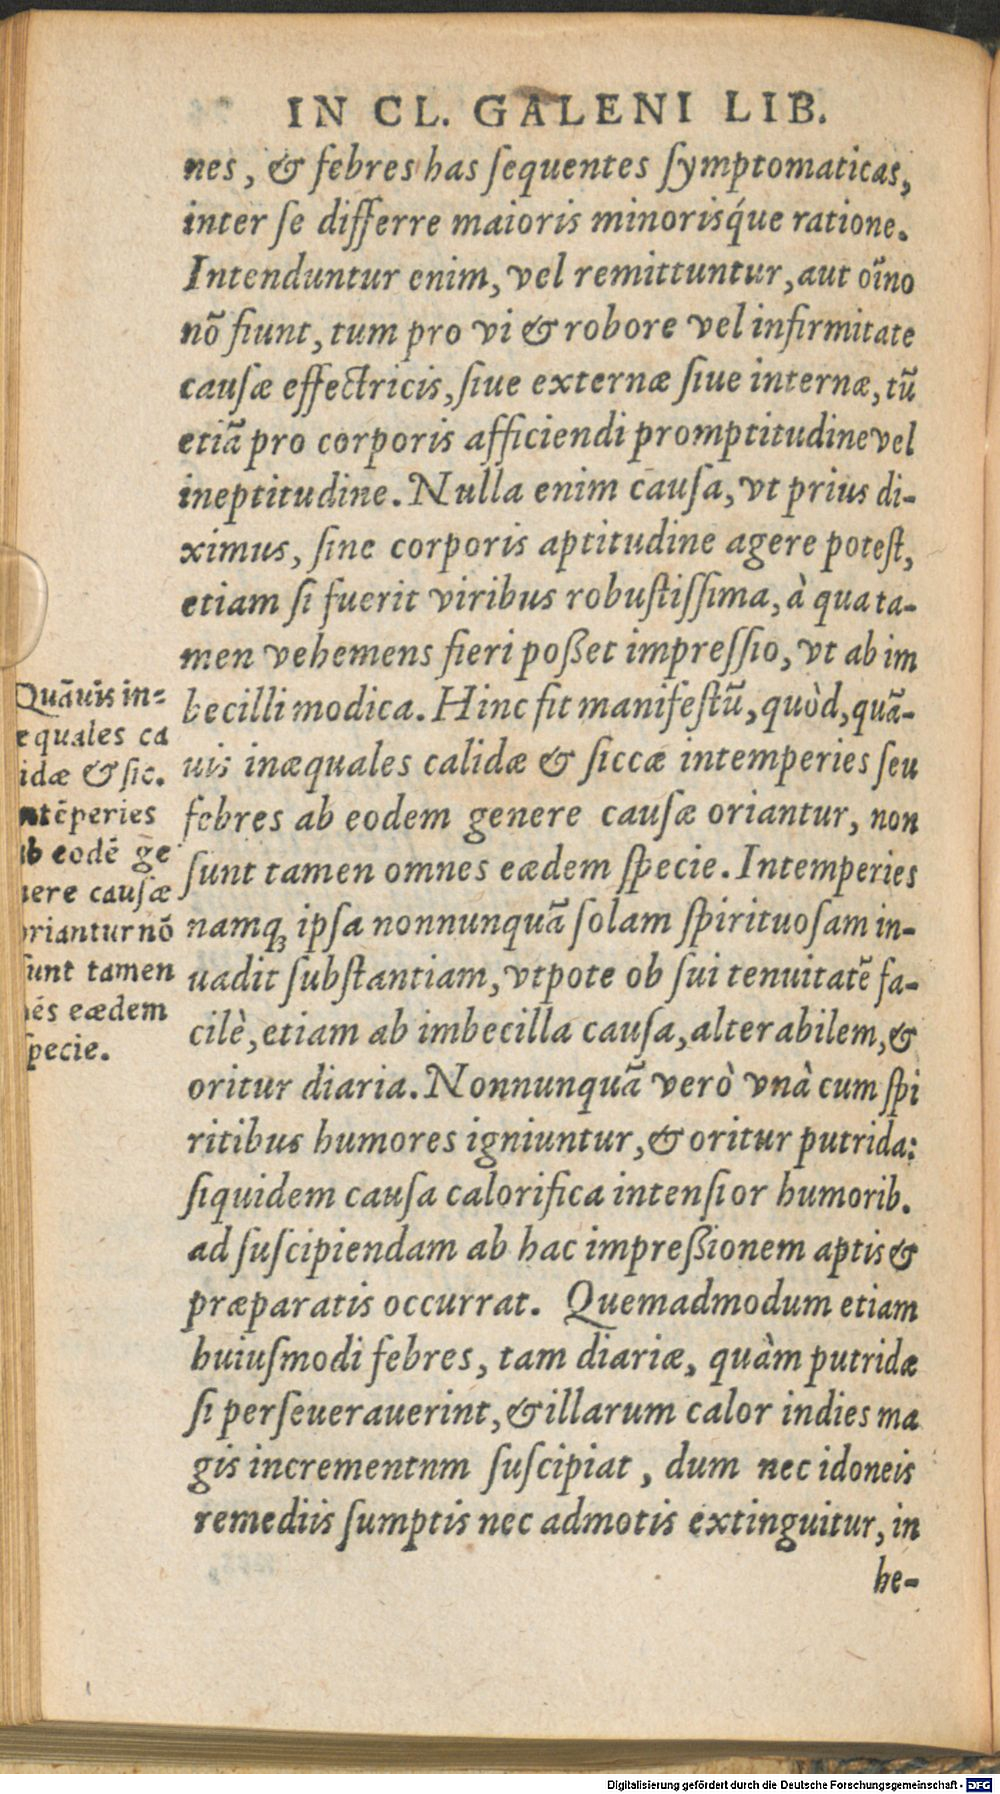 IN CL. GALENI LIB.
nes, & febres has ſequentes ſymptomaticas,
inter ſe differre maioris minorisq́ue ratione.
Intenduntur enim, vel remittuntur, aut oı̃no
nõ fiunt, tum pro vi & robore vel infirmitate
cauſæ effectricis, ſiue externæ ſiue internæ, tũ
etiã pro corporis afficiendi promptitudine vel
ineptitudine. Nulla enim cauſa, vt prius di-
ximus, ſine corporis aptitudine agere poteſt,
etiam ſi fuerit viribus robuſtiſſima, à qua ta-
men vehemens fieri poßet impreſſio, vt ab im
becilli modica. Hinc fit manifeſtũ, quòd, quã-
uis inæquales calidæ & ſiccæ intemperies ſeu
febres ab eodem genere cauſæ oriantur, non
ſunt tamen omnes eædem ſpecie. Intemperies
namq; ipſa nonnunquã ſolam ſpirituoſam in-
uadit ſubſtantiam, vtpote ob ſui tenuitatẽ fa-
cilè, etiam ab imbecilla cauſa, alterabilem, &
oritur diaria. Nonnunquã verò vnà cum ſpi
ritibus humores igniuntur, & oritur putrida:
ſiquidem cauſa calorifica intenſior humorib.
ad ſuſcipiendam ab hac impreßionem aptis &
præparatis occurrat. Quemadmodum etiam
huiuſmodi febres, tam diariæ, quàm putridæ
ſi perſeuerauerint, & illarum calor indies ma
gis incrementnm ſuſcipiat, dum nec idoneis
remediis ſumptis nec admotis extinguitur, in
he-
Quãuis in-
equales ca
idæ & ſic.
ntẽperies
ab eodẽ ge
nere cauſæ
oriantur nõ
ſunt tamen
nẽs eædem
ſpecie.
Digitalisierung gefördert durch die Deutsche Forschungsgemeinschaft - DFG